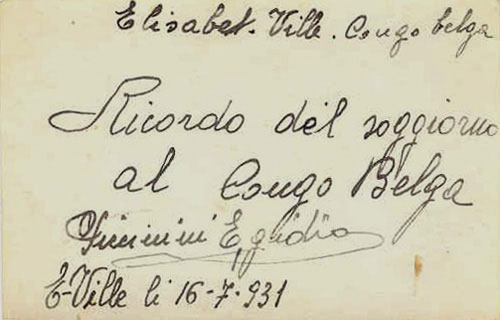 Elisabet. Ville. Congo belga
Ricordo del soggiorno
al Congo Belga
Egidio
E-Ville li 16-7-931